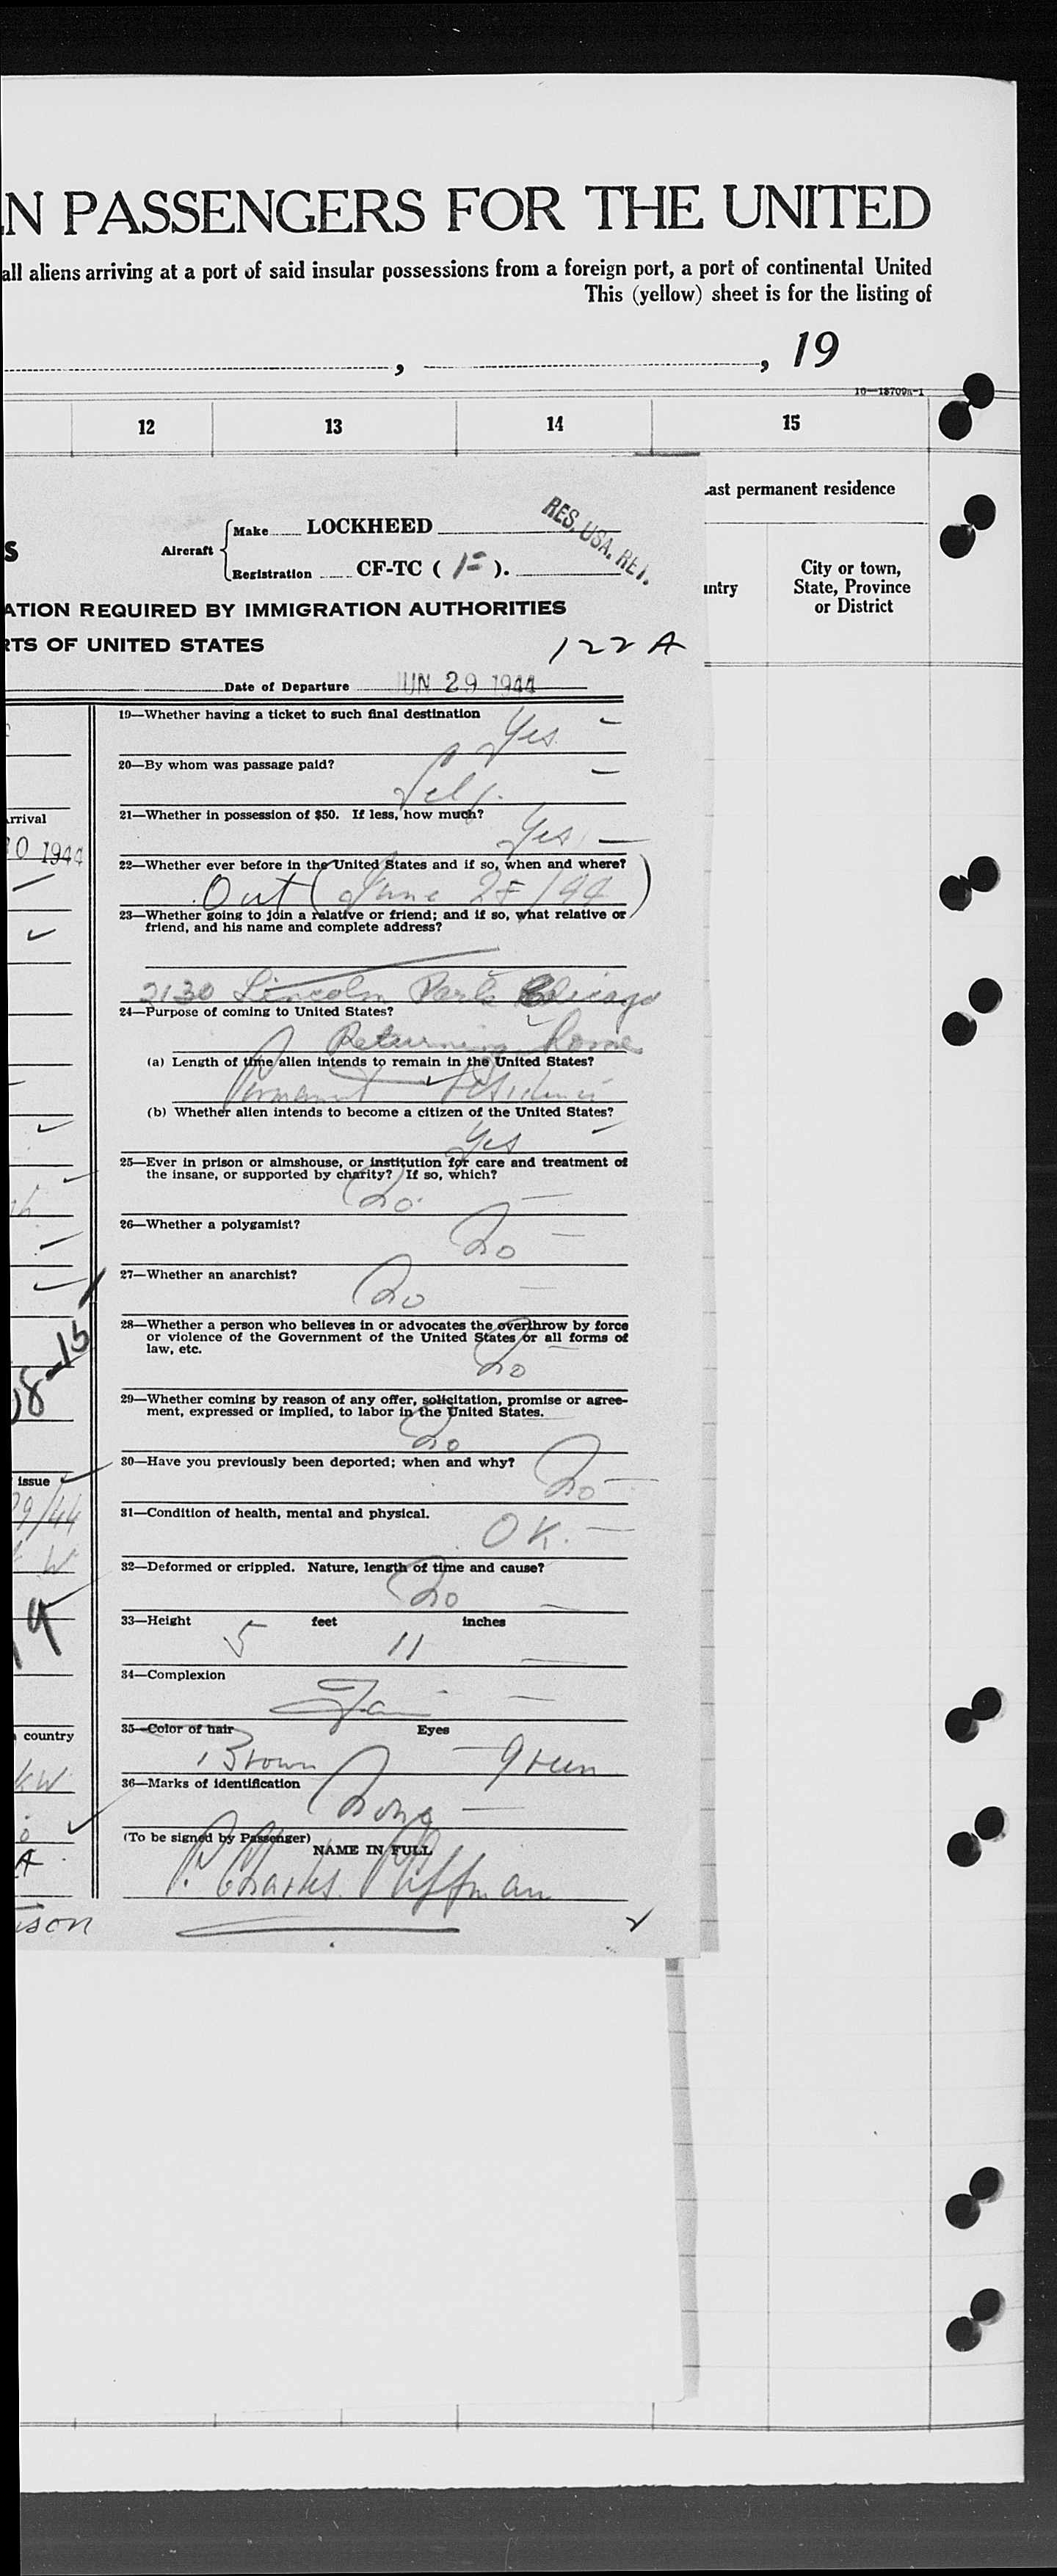 N PASSENGERS FOR THE UNITED
all aliens arriving at a port of said insular possessions from a foreign port, a port of continental United
This (yellow) sheet is for the listing of
, , 19
16—13709a-1
12 13 14 15
ast permanent residence
ntry
City or town,
State, Province
or District
S
Aircraft
Make LOCKHEED
Registration CF-TC ( ).
RES. USA. RET.
ATION REQUIRED BY IMMIGRATION AUTHORITIES
RTS OF UNITED STATES
122 A
Date of Departure JUN 29 1944
19—Whether having a ticket to such final destination
Yes
20—By whom was passage paid?
Self.
rrival
0 1944
21—Whether in possession of $50. If less, how much?
Yes
22—Whether ever before in the United States and if so, when and where?
Out (June 28/44)
23—Whether going to join a relative or friend; and if so, what relative or
friend, and his name and complete address?
2130 Lincoln Park Chicago
24—Purpose of coming to United States?
Returning home
(a) Length of time alien intends to remain in the United States?
Permanent Residence
(b) Whether alien intends to become a citizen of the United States?
Yes
25—Ever in prison or almshouse, or institution for care and treatment of
the insane, or supported by charity? If so, which?
No
26—Whether a polygamist?
No
27—Whether an anarchist?
No
28—Whether a person who believes in or advocates the overthrow by force
or violence of the Government of the United States or all forms of
law, etc.
No
29—Whether coming by reason of any offer, solicitation, promise or agree-
ment, expressed or implied, to labor in the United States.
No
30—Have you previously been deported; when and why?
No
issue
29/44
31—Condition of health, mental and physical.
OK.
32—Deformed or crippled. Nature, length of time and cause?
No
33—Height feet inches
5 11
34—Complexion
Fair
35—Color of hair Eyes
Brown Green
country
36—Marks of identification
None
(To be signed by Passenger)
NAME IN FULL
P. Charles Pliffman
son